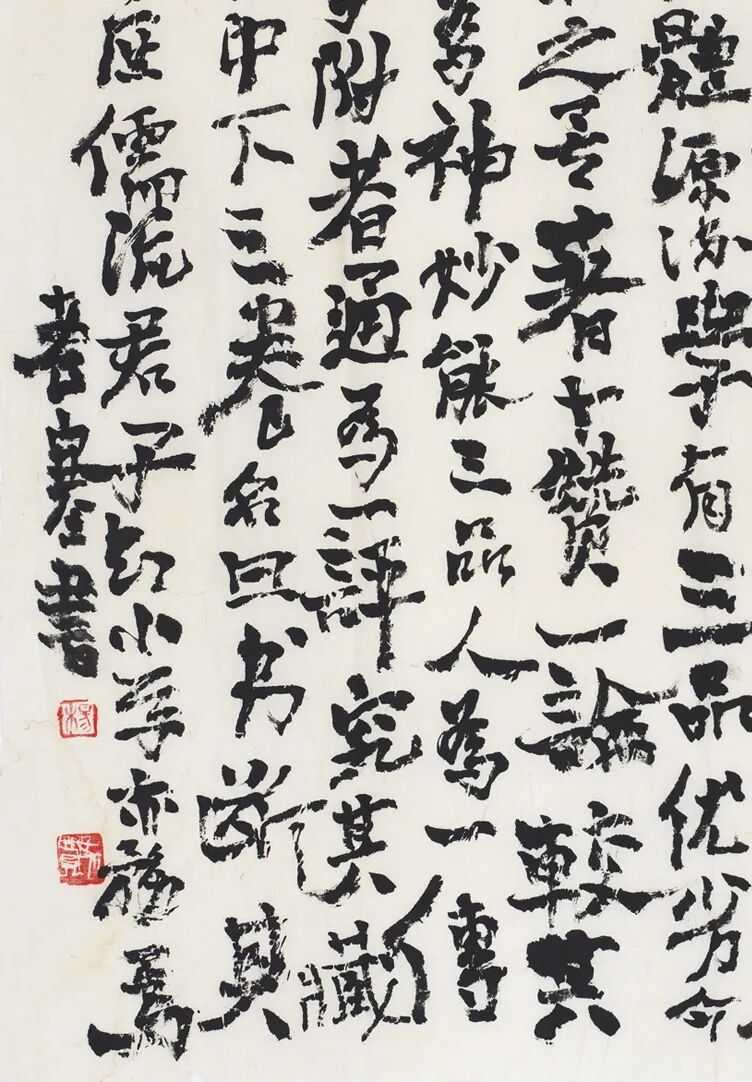 體源流學有三品优劣今
之异著十贊一論較其
為神妙能三品人為一傳
附者通為一評究其藏
中下三卷名曰书断其
庶儒流君子知小学亦務焉
書